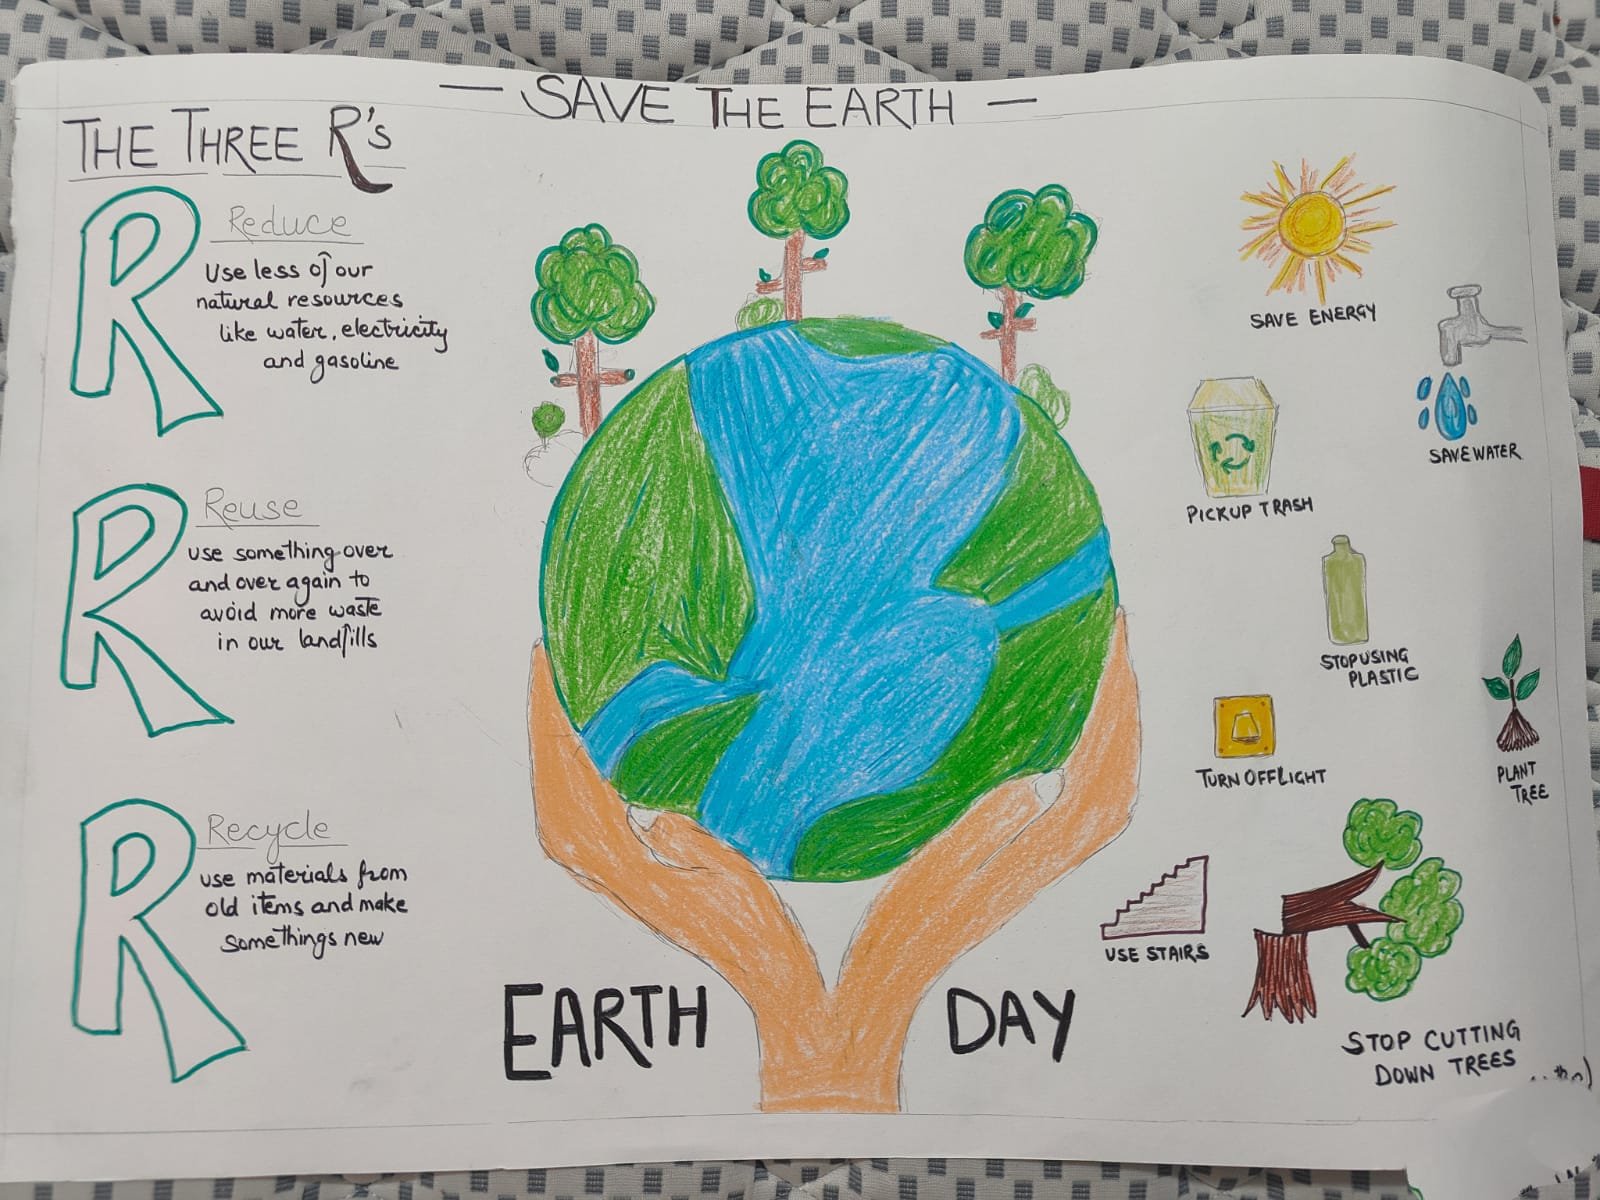 — SAVE THE EARTH —
THE THREE R's
R
Reduce
Use less of our
natural resources
like water, electricity
and gasoline
R
Reuse
use something over
and over again to
avoid more waste
in our landfills
R
Recycle
use materials from
old items and make
somethings new
EARTH DAY
SAVE ENERGY
SAVE WATER
PICKUP TRASH
STOP USING
PLASTIC
TURN OFF LIGHT
PLANT
TREE
USE STAIRS
STOP CUTTING
DOWN TREES